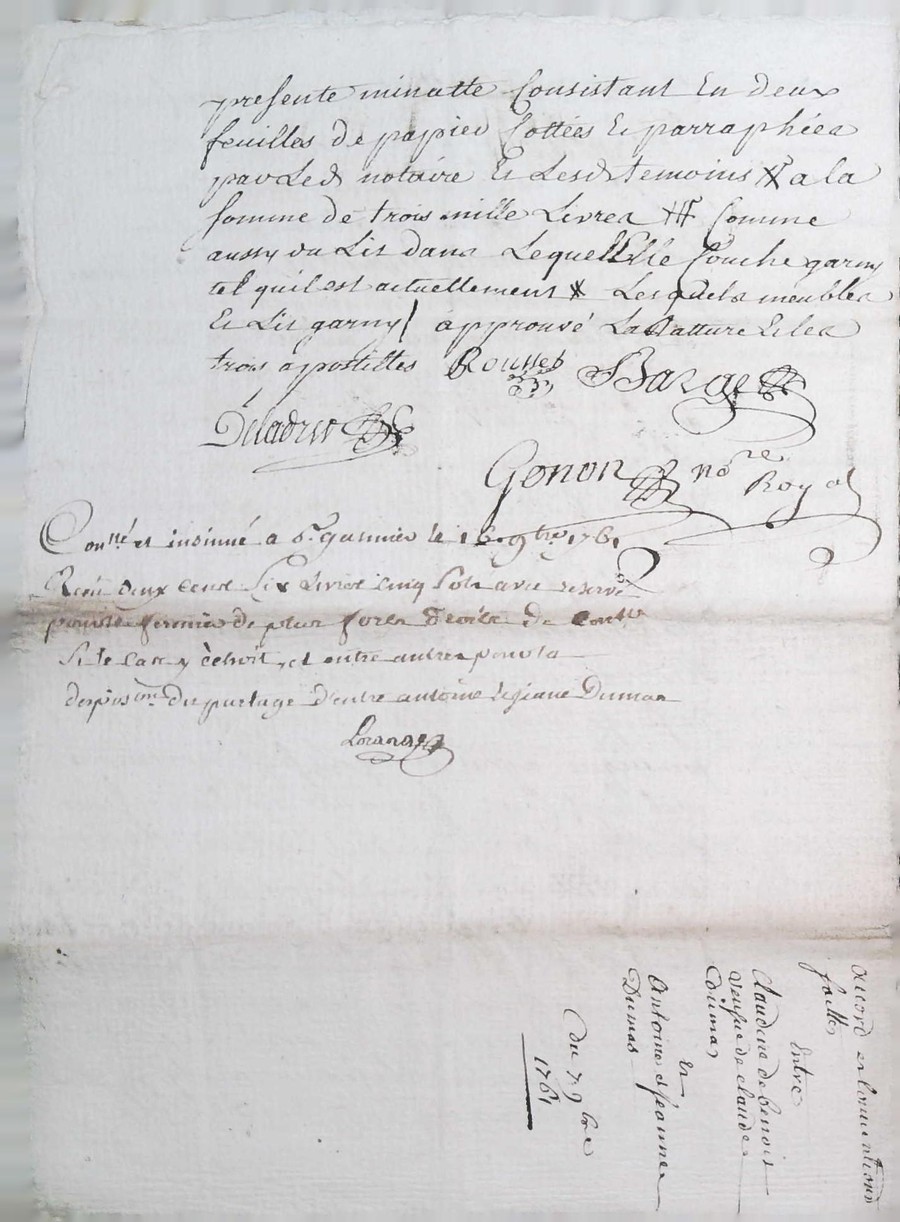 presente minutte Consistant En deux
feuilles de papier Cottées Et parraphées
par Led notaire Et Lesd temoins a la
somme de trois mille Livres Comme
aussy du Lit dans Lequel Elle Couche garny
tel quil est actuellement Lesquels meubles
Et Lit garny / approuvé La Rature Et les
trois apostilles Rousset Barge
Deladret
Gonon nore Royal
Conllé et insinué a St. Garmier le 16. 9bre 1761
Receu deux cent six livres cinq sols avec reserve
pour le fermier de plus forts droits de
si le cas y échoit, et entre autres pour la
du partage d'entre antoine et jeanne Dumas
Accord et Conventions
faittes
Entre
Claudine de benoit
veufve de Claude
Dumas
Et
Antoine et jeanne
Dumas
du 7 9bre
1761